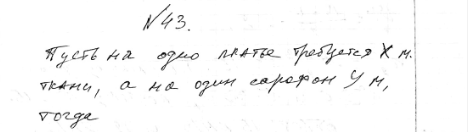 N43.
Пусть на одно платье требуется X м.
ткани, а на один сарафан y м,
тогда